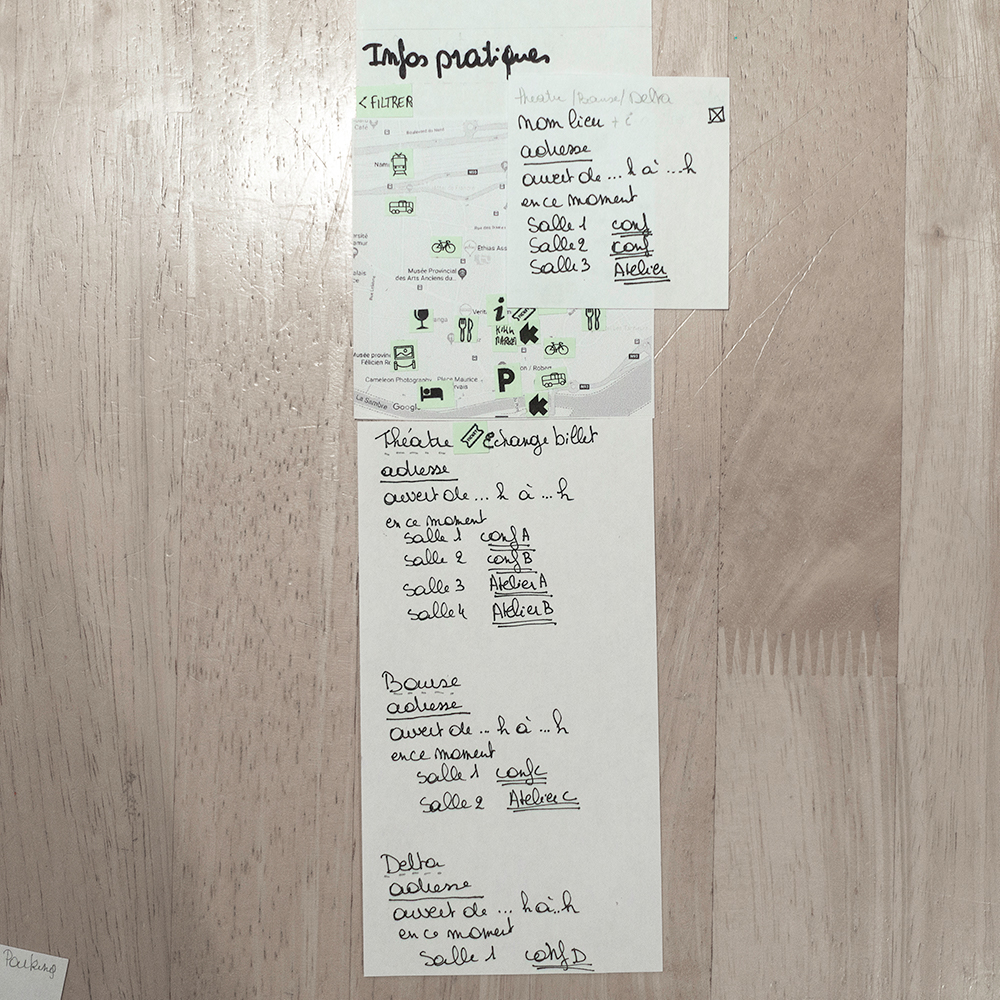 Infos pratiques
< FILTRER
Boulevard du Nord
Musée Provincial
des Arts Anciens du...
Ethias Ass
i
KIKK
MARKET
Musée provinc
Félicien Ro
P
Cameleon Photography
Place Maurice
ervais
La Sambre
Google
théatre / Bourse / Delta
nom lieu + i
adresse
ouvert de ... h à ... h
en ce moment
Salle 1 conf
Salle 2 conf
Salle 3 Atelier
Théatre TICKET Echange billet
adresse
ouvert de ... h à ... h
en ce moment
Salle 1 conf A
Salle 2 conf B
Salle 3 Atelier A
Salle 4 Atelier B
Bourse
adresse
ouvert de ... h à ... h
en ce moment
Salle 1 conf C
Salle 2 Atelier C
Delta
adresse
ouvert de ... h à .. h
en ce moment
Salle 1 conf D
Parking